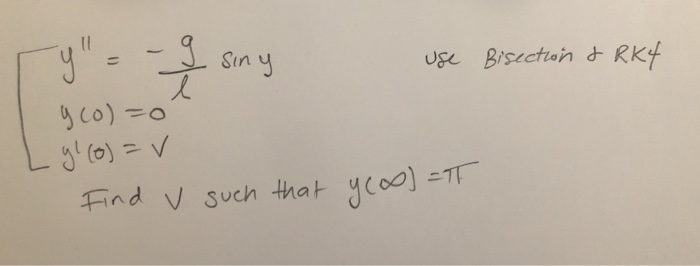 y'' = - g/l sin y
use Bisection & RK4
y(0) = 0
y'(0) = V
Find V such that y(∞) = π